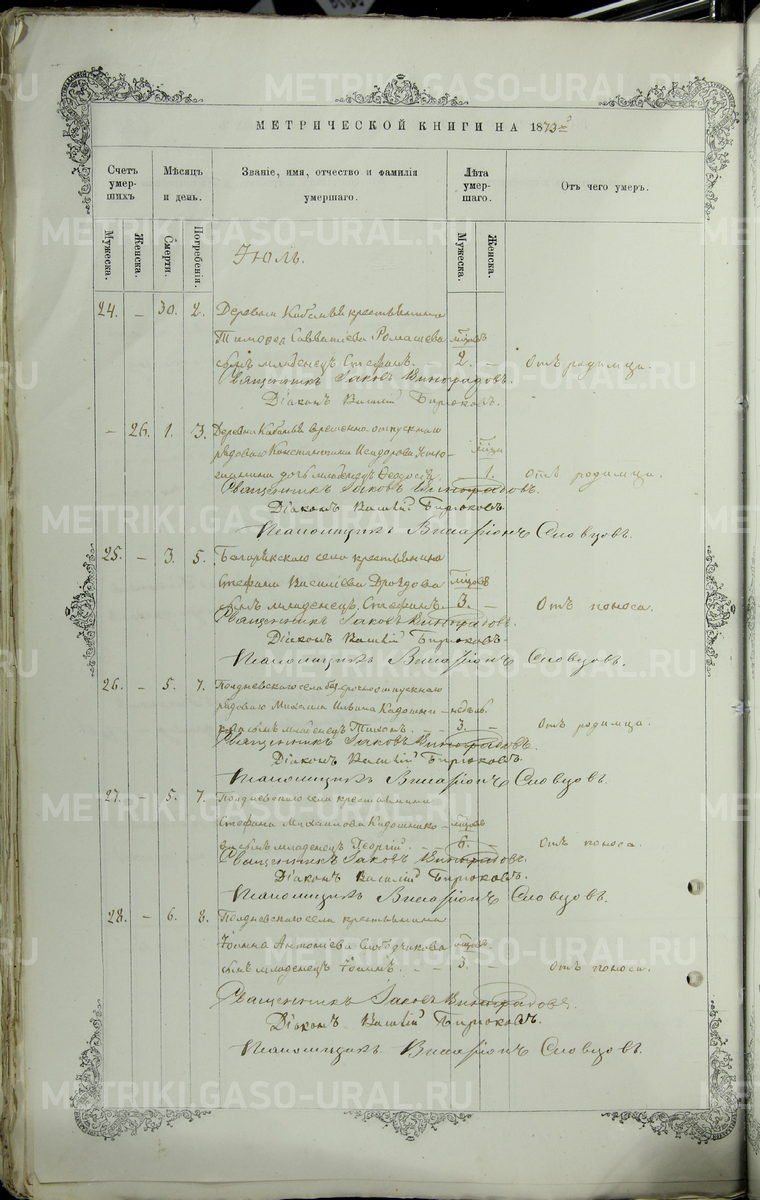 МЕТРИЧЕСКОЙ КНИГИ НА 1873 г
Счетъ умершихъ
Мужеска.
Женска.
Мѣсяцъ и день.
Смерти.
Погребенія.
Званіе, имя, отчество и фамилія умершаго.
Лѣта умершаго.
Мужеска.
Женска.
Отъ чего умеръ.
Іюль.
24. – 30. 2. Деревни крестьянина
Савватіева Ромашева мѣсяцъ
сынъ младенецъ Стефанъ. – 2. – Отъ родимца.
Священникъ Іаковъ Виноградовъ.
Діаконъ Василій Бирюковъ.
– 26. 1. 3. Деревни временно отпускнаго
рядоваго Константина Исидорова
дочь младенецъ Ѳеодосія. 1. Отъ родимца.
Священникъ Іаковъ Виноградовъ.
Діаконъ Василій Бирюковъ.
Псаломщикъ Виссаріонъ Словцовъ.
25. – 3. 5. Багарякскаго села крестьянина
Стефана Василіева Дроздова мѣсяцъ
сынъ младенецъ Стефанъ. 3. – Отъ поноса.
Священникъ Іаковъ Виноградовъ.
Діаконъ Василій Бирюковъ.
Псаломщикъ Виссаріонъ Словцовъ.
26. – 5. 7. Полдневскаго села безсрочноотпускнаго
рядоваго Михаила Ильина Кадошни- недѣль
кова сынъ младенецъ Тихонъ. – 3. – Отъ родимца.
Священникъ Іаковъ Виноградовъ.
Діаконъ Василій Бирюковъ.
Псаломщикъ Виссаріонъ Словцовъ.
27. – 5. 7. Полдневскаго села крестьянина
Стефана Михаилова Кадошнико- мѣсяцъ
ва сынъ младенецъ Георгій. – 6. – Отъ поноса.
Священникъ Іаковъ Виноградовъ.
Діаконъ Василій Бирюковъ.
Псаломщикъ Виссаріонъ Словцовъ.
28. – 6. 8. Полдневскаго села крестьянина
Іоанна Антоніева Слободчикова мѣсяцъ
сынъ младенецъ Іоаннъ. – 3. – Отъ поноса.
Священникъ Іаковъ Виноградовъ.
Діаконъ Василій Бирюковъ.
Псаломщикъ Виссаріонъ Словцовъ.
METRIKI.GASO-URAL.RU